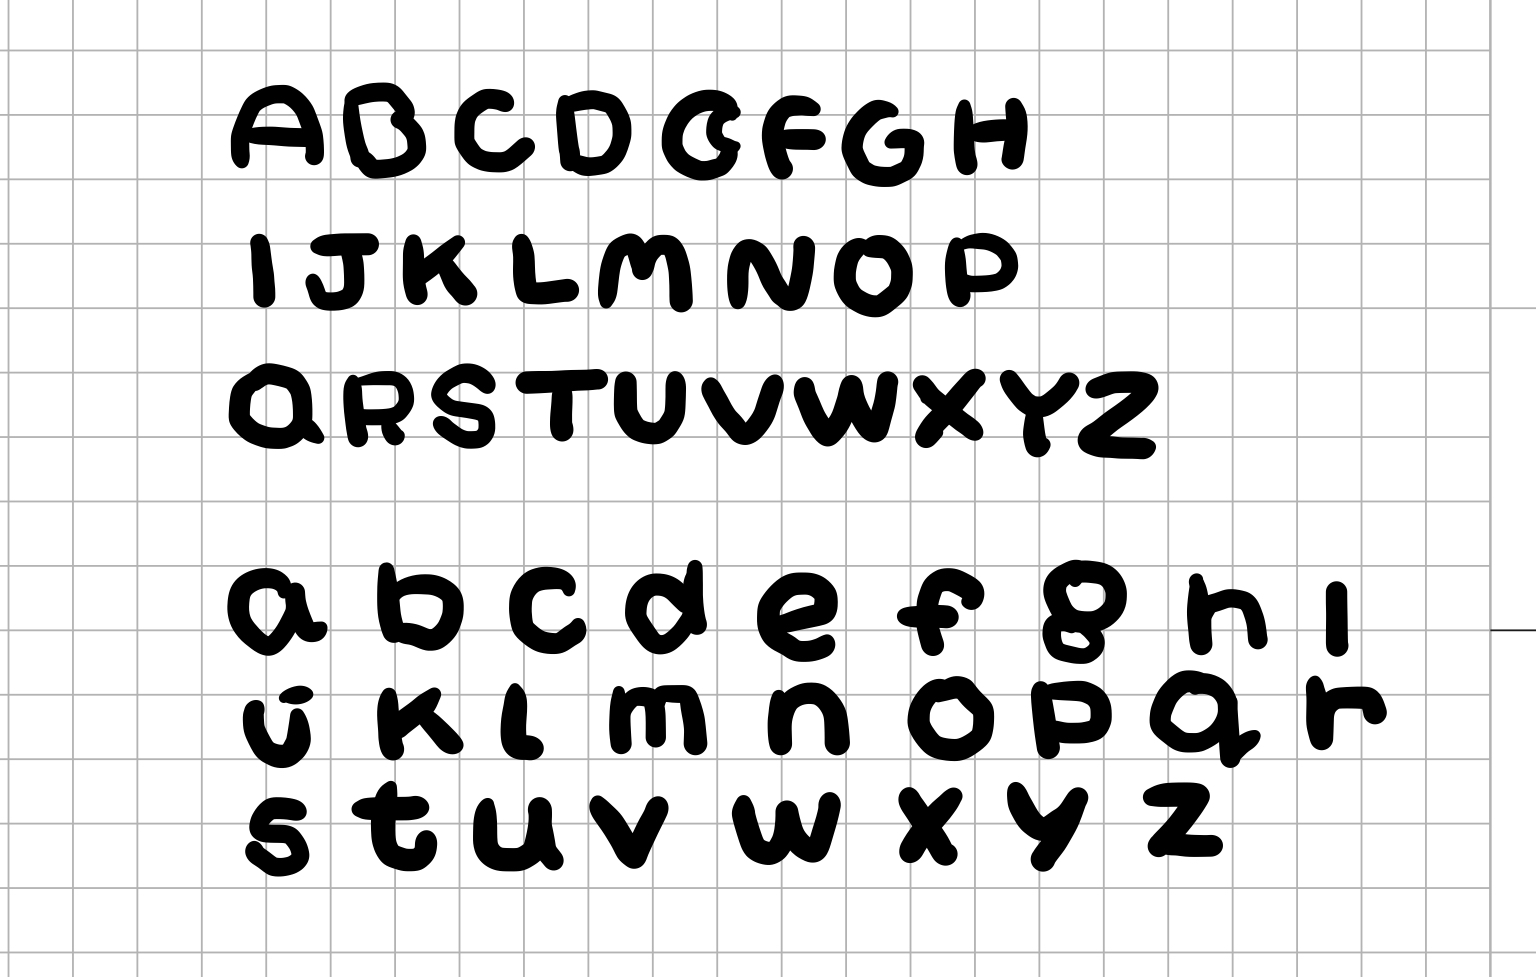 ABCDEFGH
IJKLMNOP
QRSTUVWXYZ
a b c d e f g h i
j k l m n o p q r
s t u v w x y z